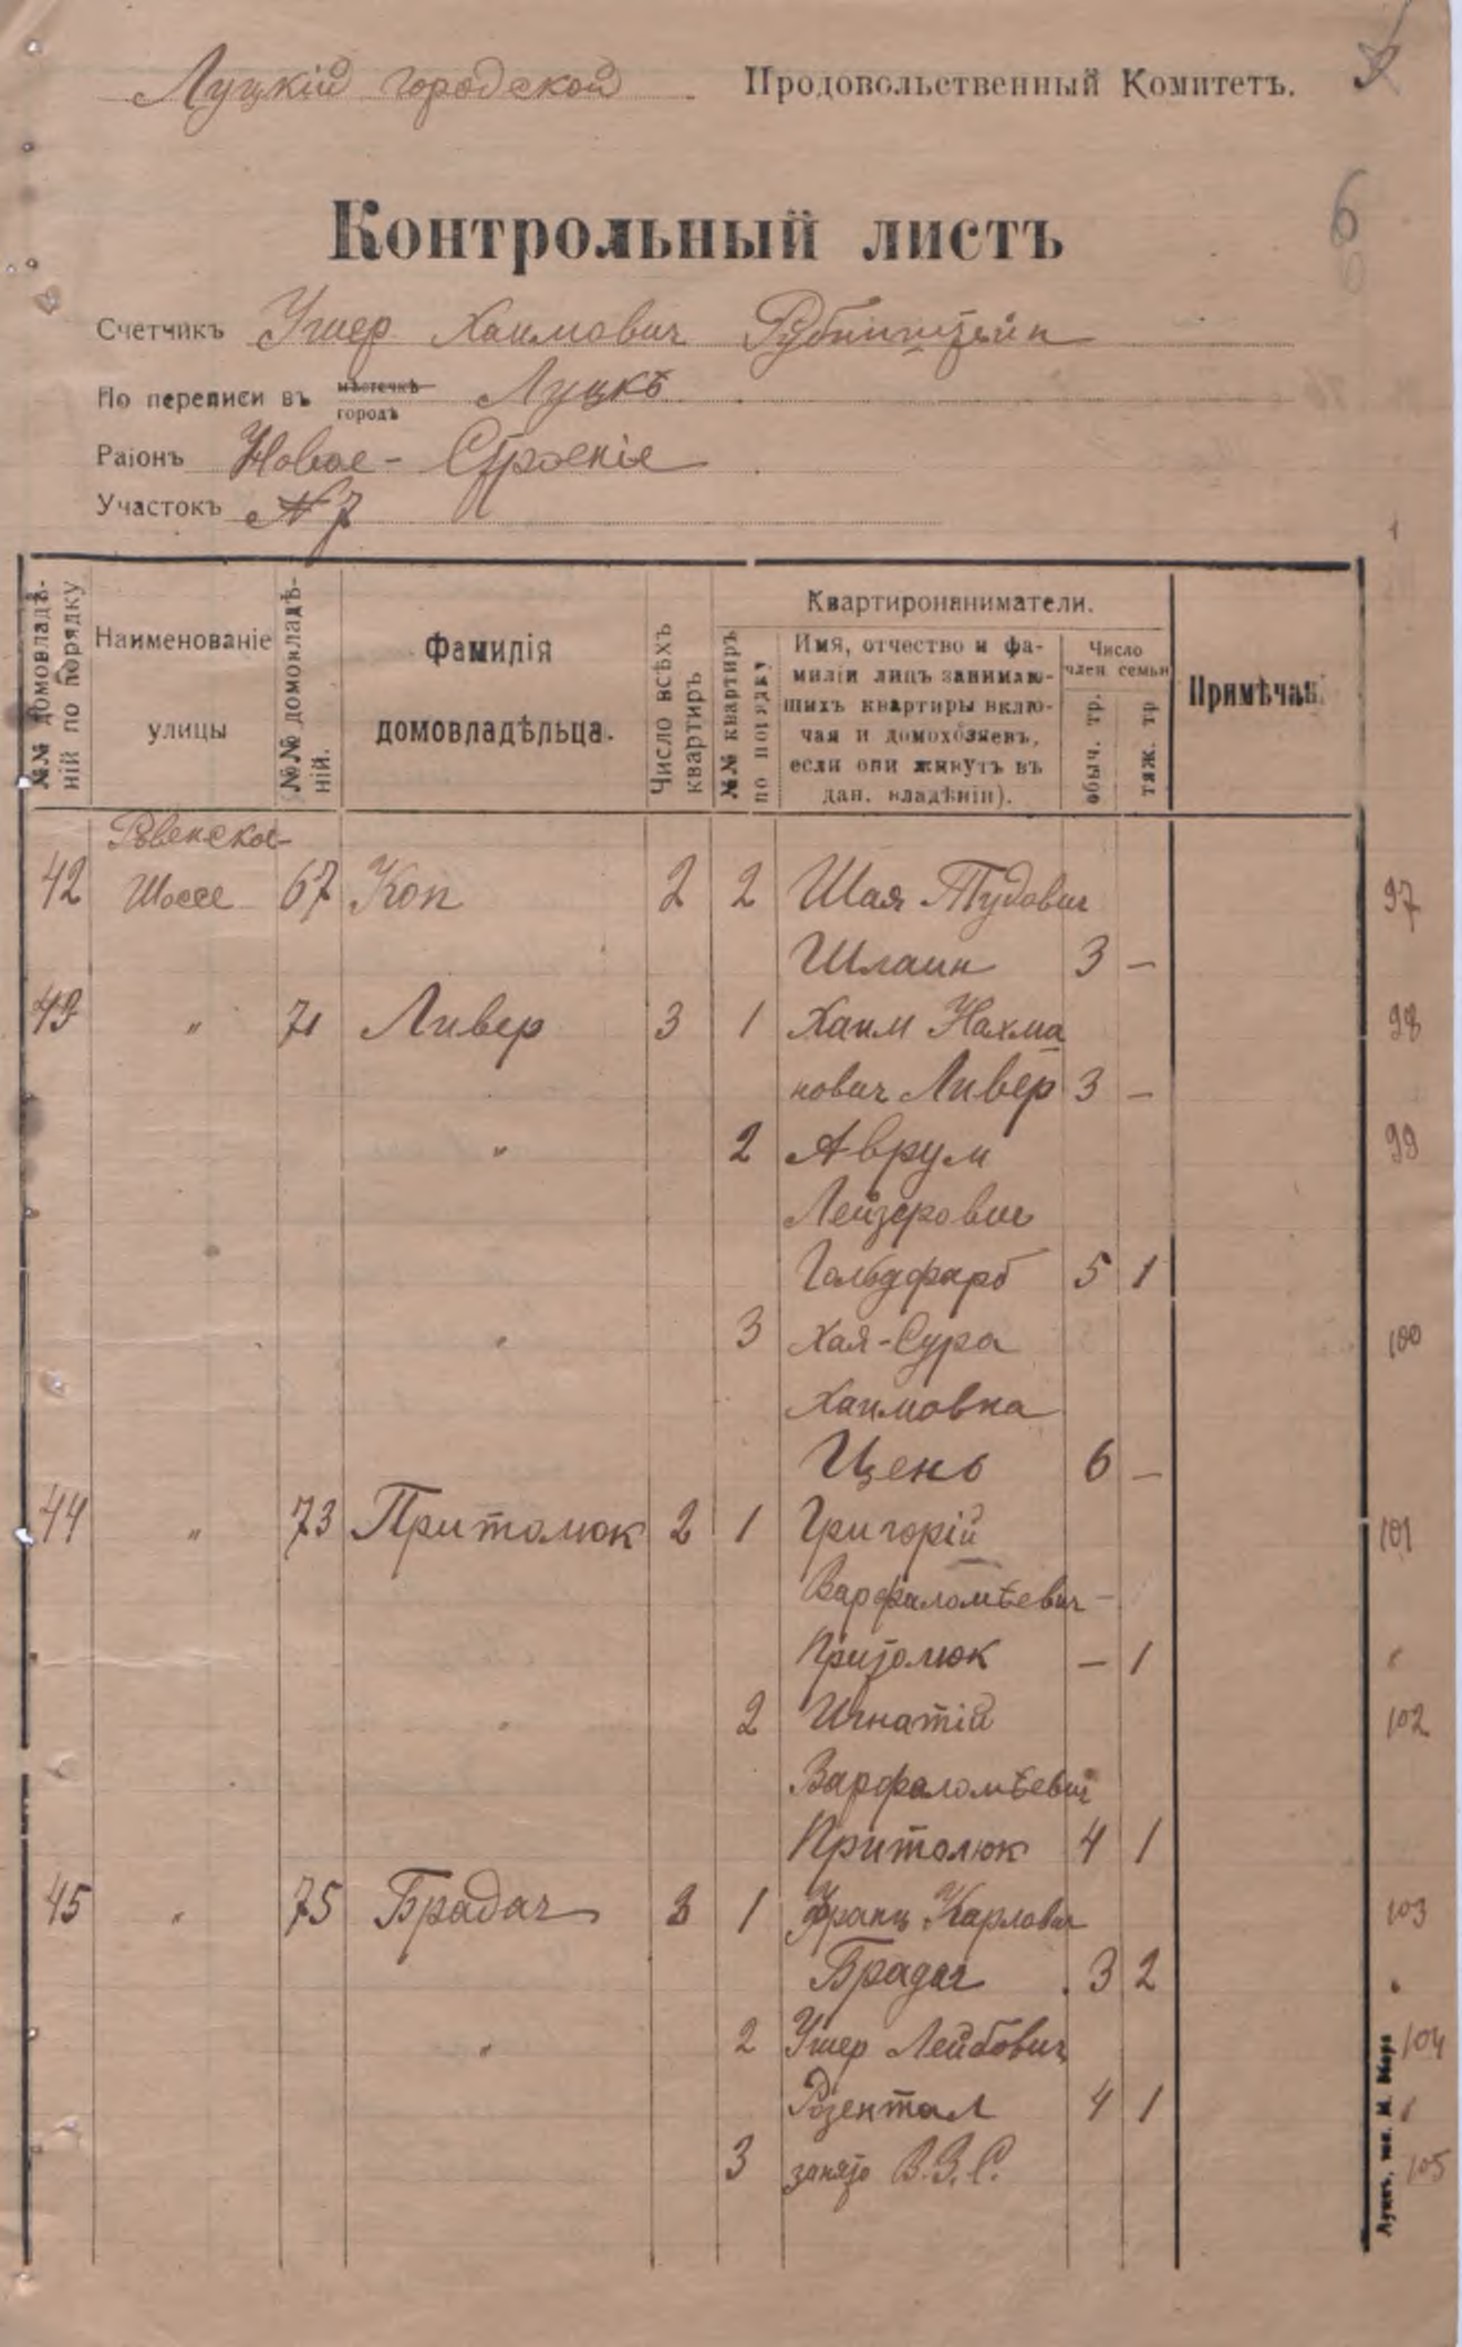 Луцкій городской Продовольственный Комитетъ.
6
Контрольный листъ
Счетчикъ Ушер Хаимович Рубинштейн
По переписи въ мѣстечкѣ городѣ Луцкѣ
Раіонъ Новое-Строеніе
Участокъ №7
№№ домовладѣній по порядку
Наименованіе улицы
№№ домовладѣній.
Фамилія домовладѣльца.
Число всѣхъ квартиръ
Квартиронаниматели.
№№ квартиръ по порядку
Имя, отчество и фа-
миліи лицъ занимаю-
щихъ квартиры вклю-
чая и домохозяевъ,
если они живутъ въ
дан. владѣніи).
Число
член семьи
обыч. тр.
тяж. тр
Примѣчан.
Ровенское-
42 Шоссе 67 Коп 2 2 Шая Тудович 97
Шлаин 3 —
43 " 71 Ливер 3 1 Хаим Нахма 98
нович Ливер 3 —
" 2 Аврум 99
Лейзерович
Гольдфарб 5 1
" 3 Хая-Сура 100
Хаимовна
Цень 6 —
44 " 73 Притолюк 2 1 Григорій 101
Варфаломѣевич —
Притолюк — 1
" 2 Игнатій 102
Варфаломѣевич
Притолюк 4 1
45 " 75 Брадач 3 1 Франц Карлович 103
Брадач 3 2
" 2 Ушер Лейбович 104
Розентал 4 1
3 занято В.З.С. 105
Луцкъ, тип. М.